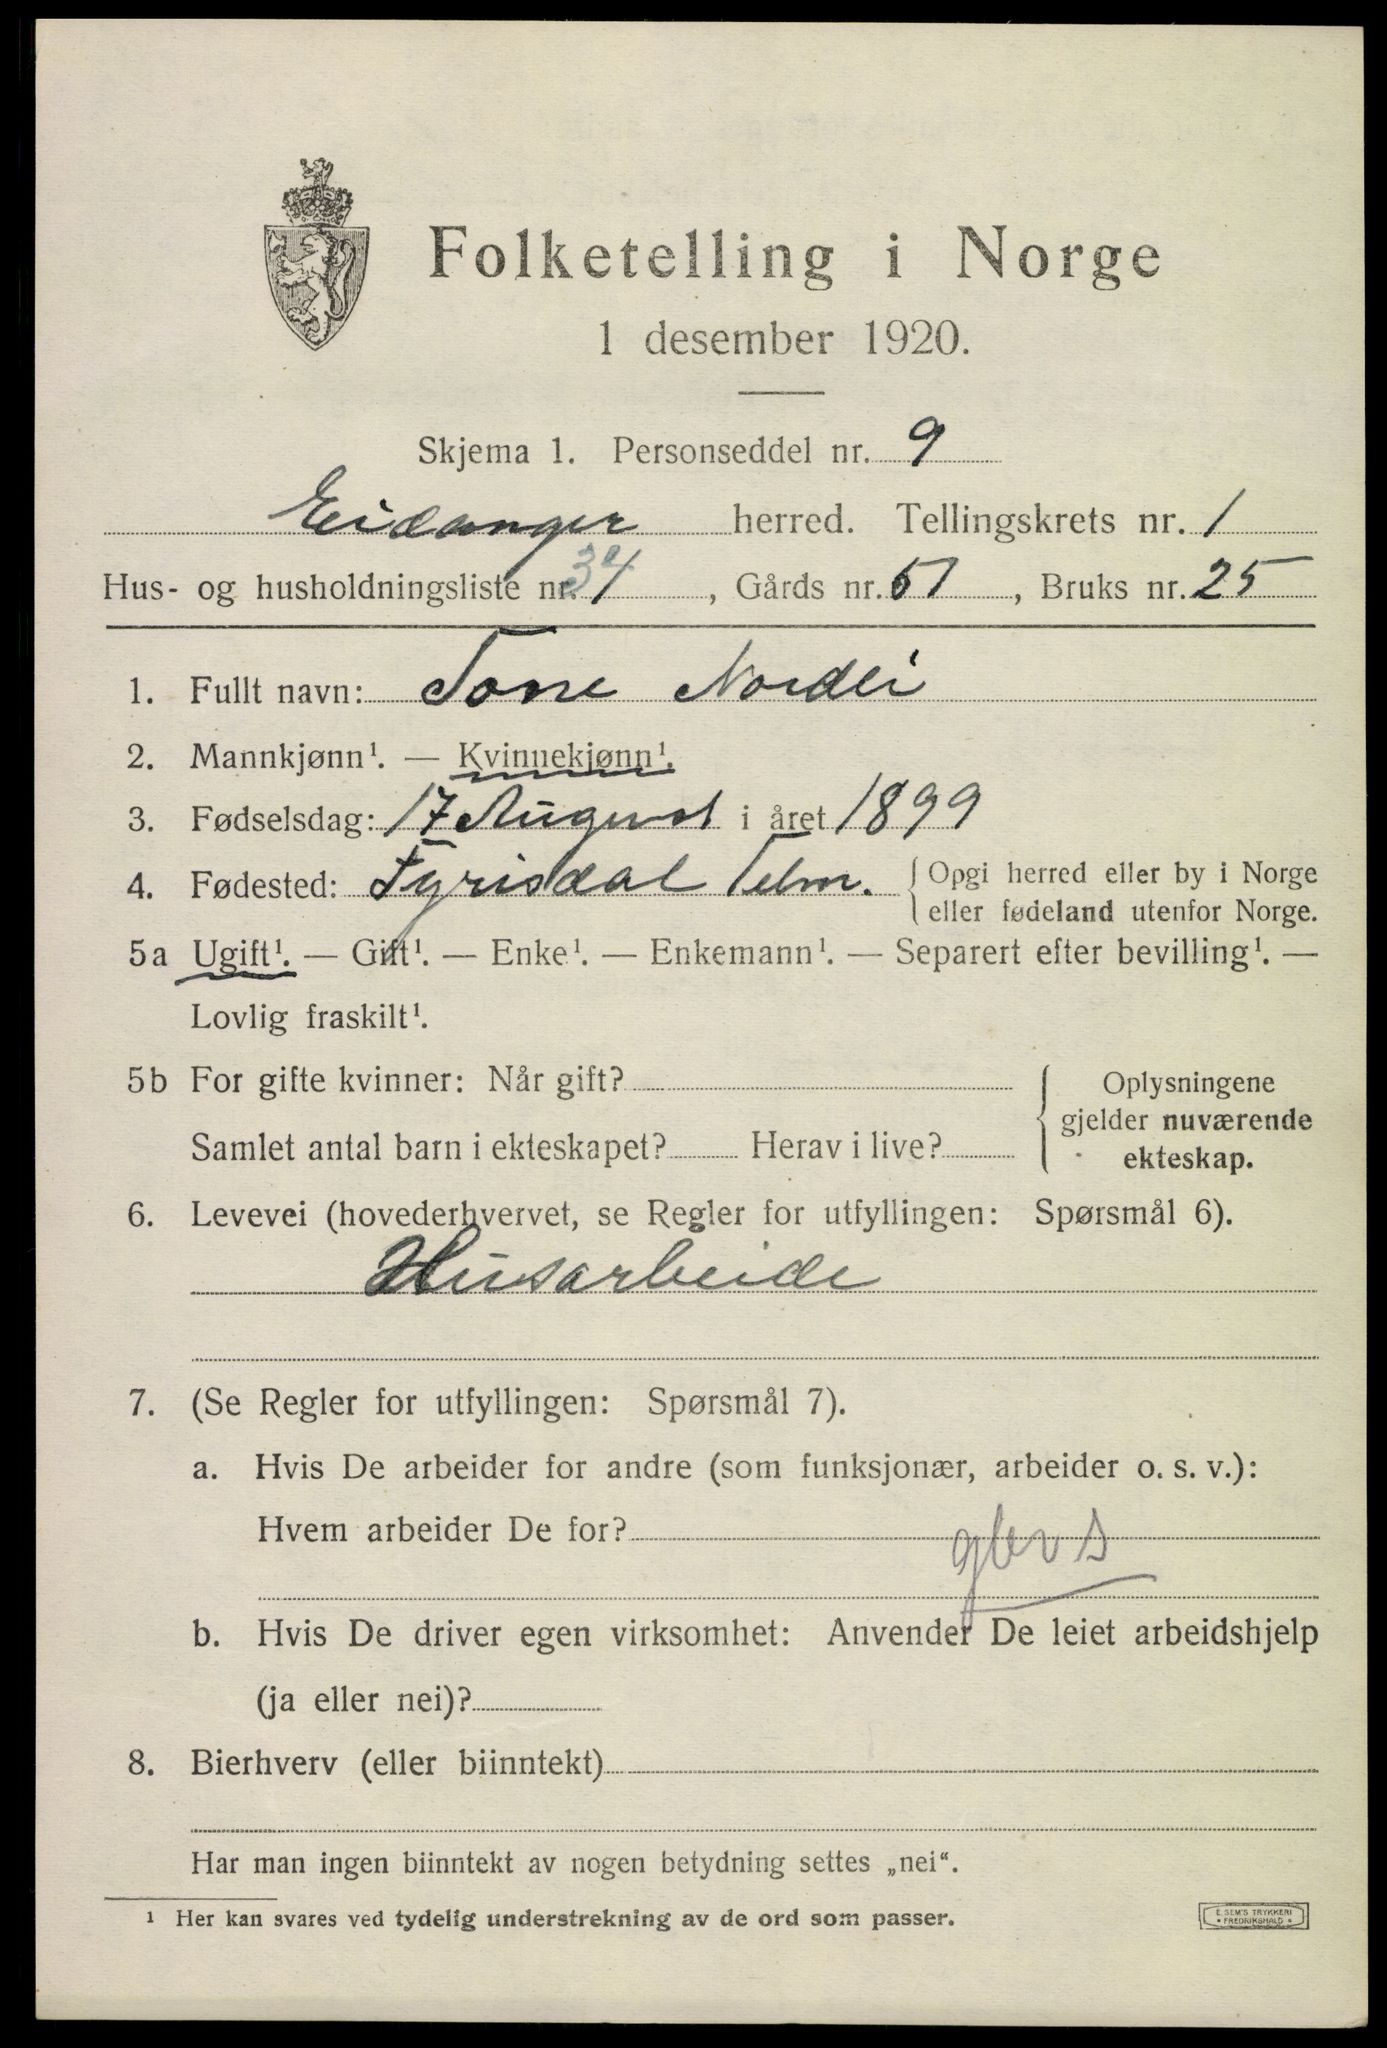 Folketelling i Norge
1 desember 1920.
Skjema 1. Personseddel nr. 9
Eidanger herred. Tellingskrets nr. 1
Hus- og husholdningsliste nr. 34, Gårds nr. 51, Bruks nr. 25
1. Fullt navn: Tone Nordli
2. Mannkjønn¹. — Kvinnekjønn¹.
3. Fødselsdag: 17 August i året 1899
4. Fødested: Fyrisdal Telm. { Opgi herred eller by i Norge
eller fødeland utenfor Norge.
5a Ugift¹. — Gift¹. — Enke¹. — Enkemann¹. — Separert efter bevilling¹. —
Lovlig fraskilt¹.
5b For gifte kvinner: Når gift?
Samlet antal barn i ekteskapet? Herav i live?
{ Oplysningene
gjelder nuværende
ekteskap.
6. Levevei (hovederhvervet, se Regler for utfyllingen: Spørsmål 6).
Husarbeide
7. (Se Regler for utfyllingen: Spørsmål 7).
a. Hvis De arbeider for andre (som funksjonær, arbeider o. s. v.):
Hvem arbeider De for?
b. Hvis De driver egen virksomhet: Anvender De leiet arbeidshjelp
(ja eller nei)?
8. Bierhverv (eller biinntekt)
Har man ingen biinntekt av nogen betydning settes „nei“.
¹ Her kan svares ved tydelig understrekning av de ord som passer.
E. SEM'S TRYKKERI
• FREDRIKSHALD •